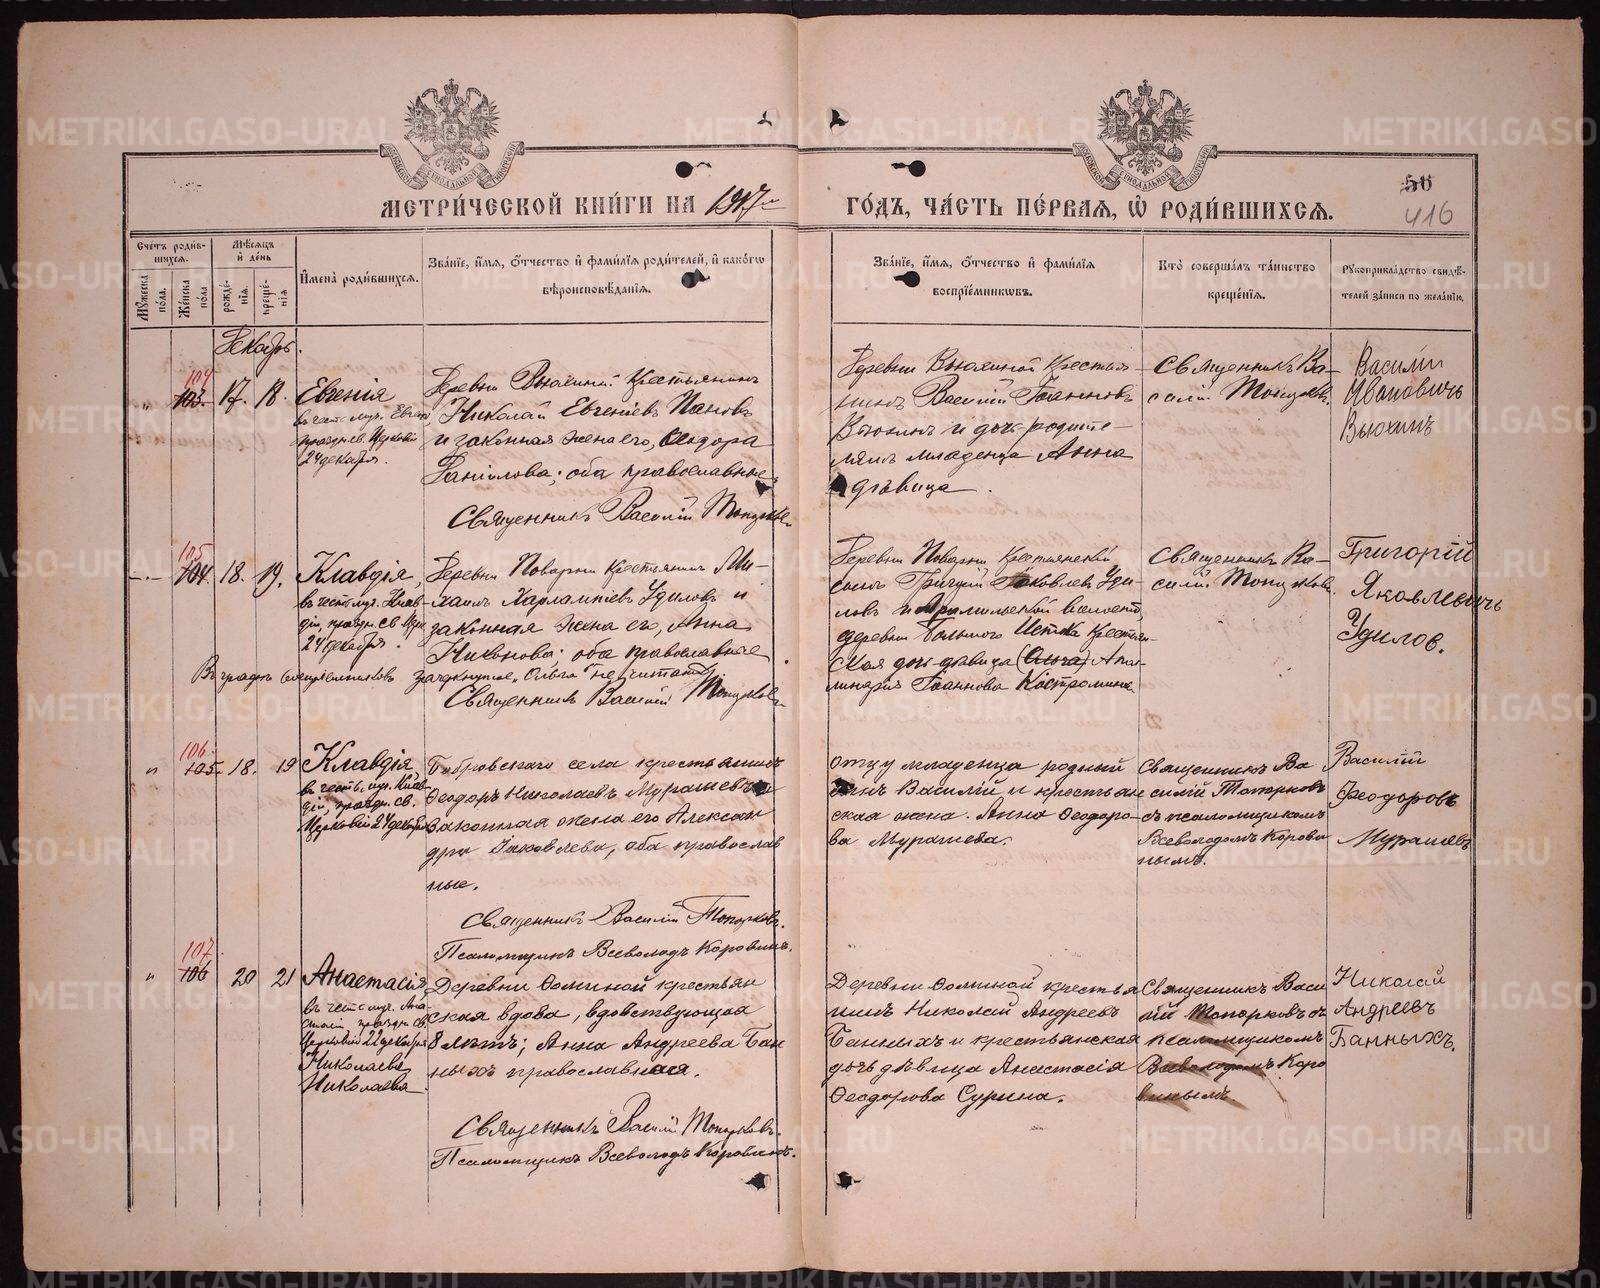 МЕТРИЧЕСКОЙ КНИГИ НА 1917 г
ГОДЪ, ЧАСТЬ ПЕРВАЯ, Ѡ РОДИВШИХСЯ.
50
416
Счетъ родив-
шихся.
Мѣсяцъ
и день
Имена родившихся.
Званіе, имя, отчество и фамилія родителей, и какого
вѣроисповѣданія.
Званіе, имя, отчество и фамилія
воспріемниковъ.
Кто совершалъ таинство
крещенія.
Рукоприкладство свидѣ-
телей записи по желанію.
Мужеска пола.
Женска пола.
рожде-нія.
креще-нія
Декабрь.
104
103. 17. 18. Евгенія
въ честь муч. Евгеніи
праздн. св. Церковію
24 декабря.
Деревни Вьюхиной крестьянинъ
Николай Евгеніевъ Пановъ
и законная жена его, Ѳеодора
Даніилова; оба православные
Священникъ Василій Топорковъ
Деревни Вьюхиной крестья-
нинъ Василій Іоанновъ
Вьюхинъ и дочь родите-
лямъ младенца Анна
дѣвица.
Священникъ Ва-
силій Топорковъ.
Василий
Ивановичъ
Вьюхинъ
105
104. 18. 19. Клавдія,
въ честь муч. Клав-
діи, праздн. св. Церк.
24 декабря.
Деревни Поварни крестьянинъ Ми-
хаилъ Харлампіевъ Удиловъ и
законная жена его, Анна
Никонова; оба православные
Въ графѣ воспріемниковъ зачеркнутое „Ольга" не читать
Священникъ Василій Топорковъ
Деревни Поварни крестьянскій
сынъ Григорій Іаковлевъ Уди-
ловъ и Арамильской волости,
деревни Большого Истока крестьян-
ская дочь-дѣвица (Ольга) Апол-
линарія Іоаннова Костромина.
Священникъ Ва-
силій Топорковъ.
Григорій
Яковлевичъ
Удилов.
106
105. 18. 19 Клавдія,
въ честь муч. Клав-
діи, праздн. св.
Церковію 24 декабря
Бобровскаго села крестьянинъ
Ѳеодоръ Николаевъ Мурашевъ и
законная жена его Алексан
дра Іаковлева, оба православ
ные.
Священникъ Василій Топорковъ.
Псаломщикъ Всеволодъ Коровинъ.
отцу младенца родный
сынъ Василій и крестьян
ская жена Анна Ѳеодоро-
ва Мурашева.
Священникъ Ва
силій Топорковъ
съ псаломщикомъ
Всеволодомъ Корови
нымъ.
Василій
Ѳеодоровъ
Мурашевъ
107
106 20 21 Анастасія
въ честь муч. Ана-
стасіи, праздн. св.
Церковію 22 декабря
Николаева
Николаева
Деревни Ѳоминой крестьян
ская вдова, вдовствующая
8 лѣтъ; Анна Андреева Бан
ныхъ православная.
Священникъ Василій Топорковъ.
Псаломщикъ Всеволодъ Коровинъ.
Деревни Ѳоминой крестья
нинъ Николай Андреевъ
Банныхъ и крестьянская
дочь дѣвица Анастасія
Ѳеодорова Сурина.
Священникъ Васи
лій Топорковъ съ
псаломщикомъ
Всеволодомъ Коро
винымъ.
Николай
Андреевъ
Банныхъ.
METRIKI.GASO-URAL.RU